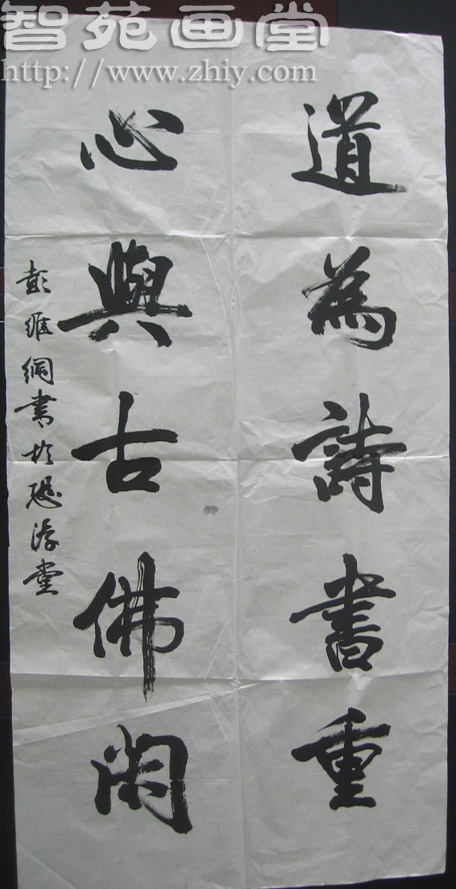 智苑画堂
http://www.zhiy.com
道為詩書重
心與古佛閑
彭維綱書於聽濤堂